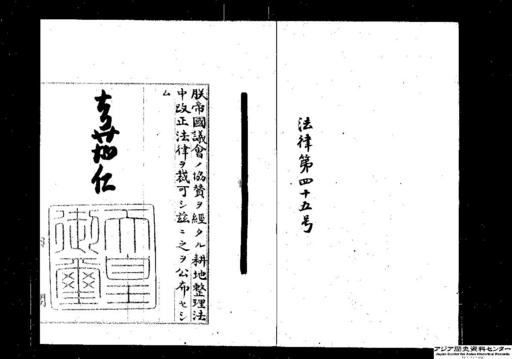 法律第四十五号
朕帝國議會ノ協賛ヲ經タル耕地整理法
中改正法律ヲ裁可シ茲ニ之ヲ公布セシ
ム
嘉仁
天皇
御璽
アジア歴史資料センター
Japan Center for Asian Historical Records